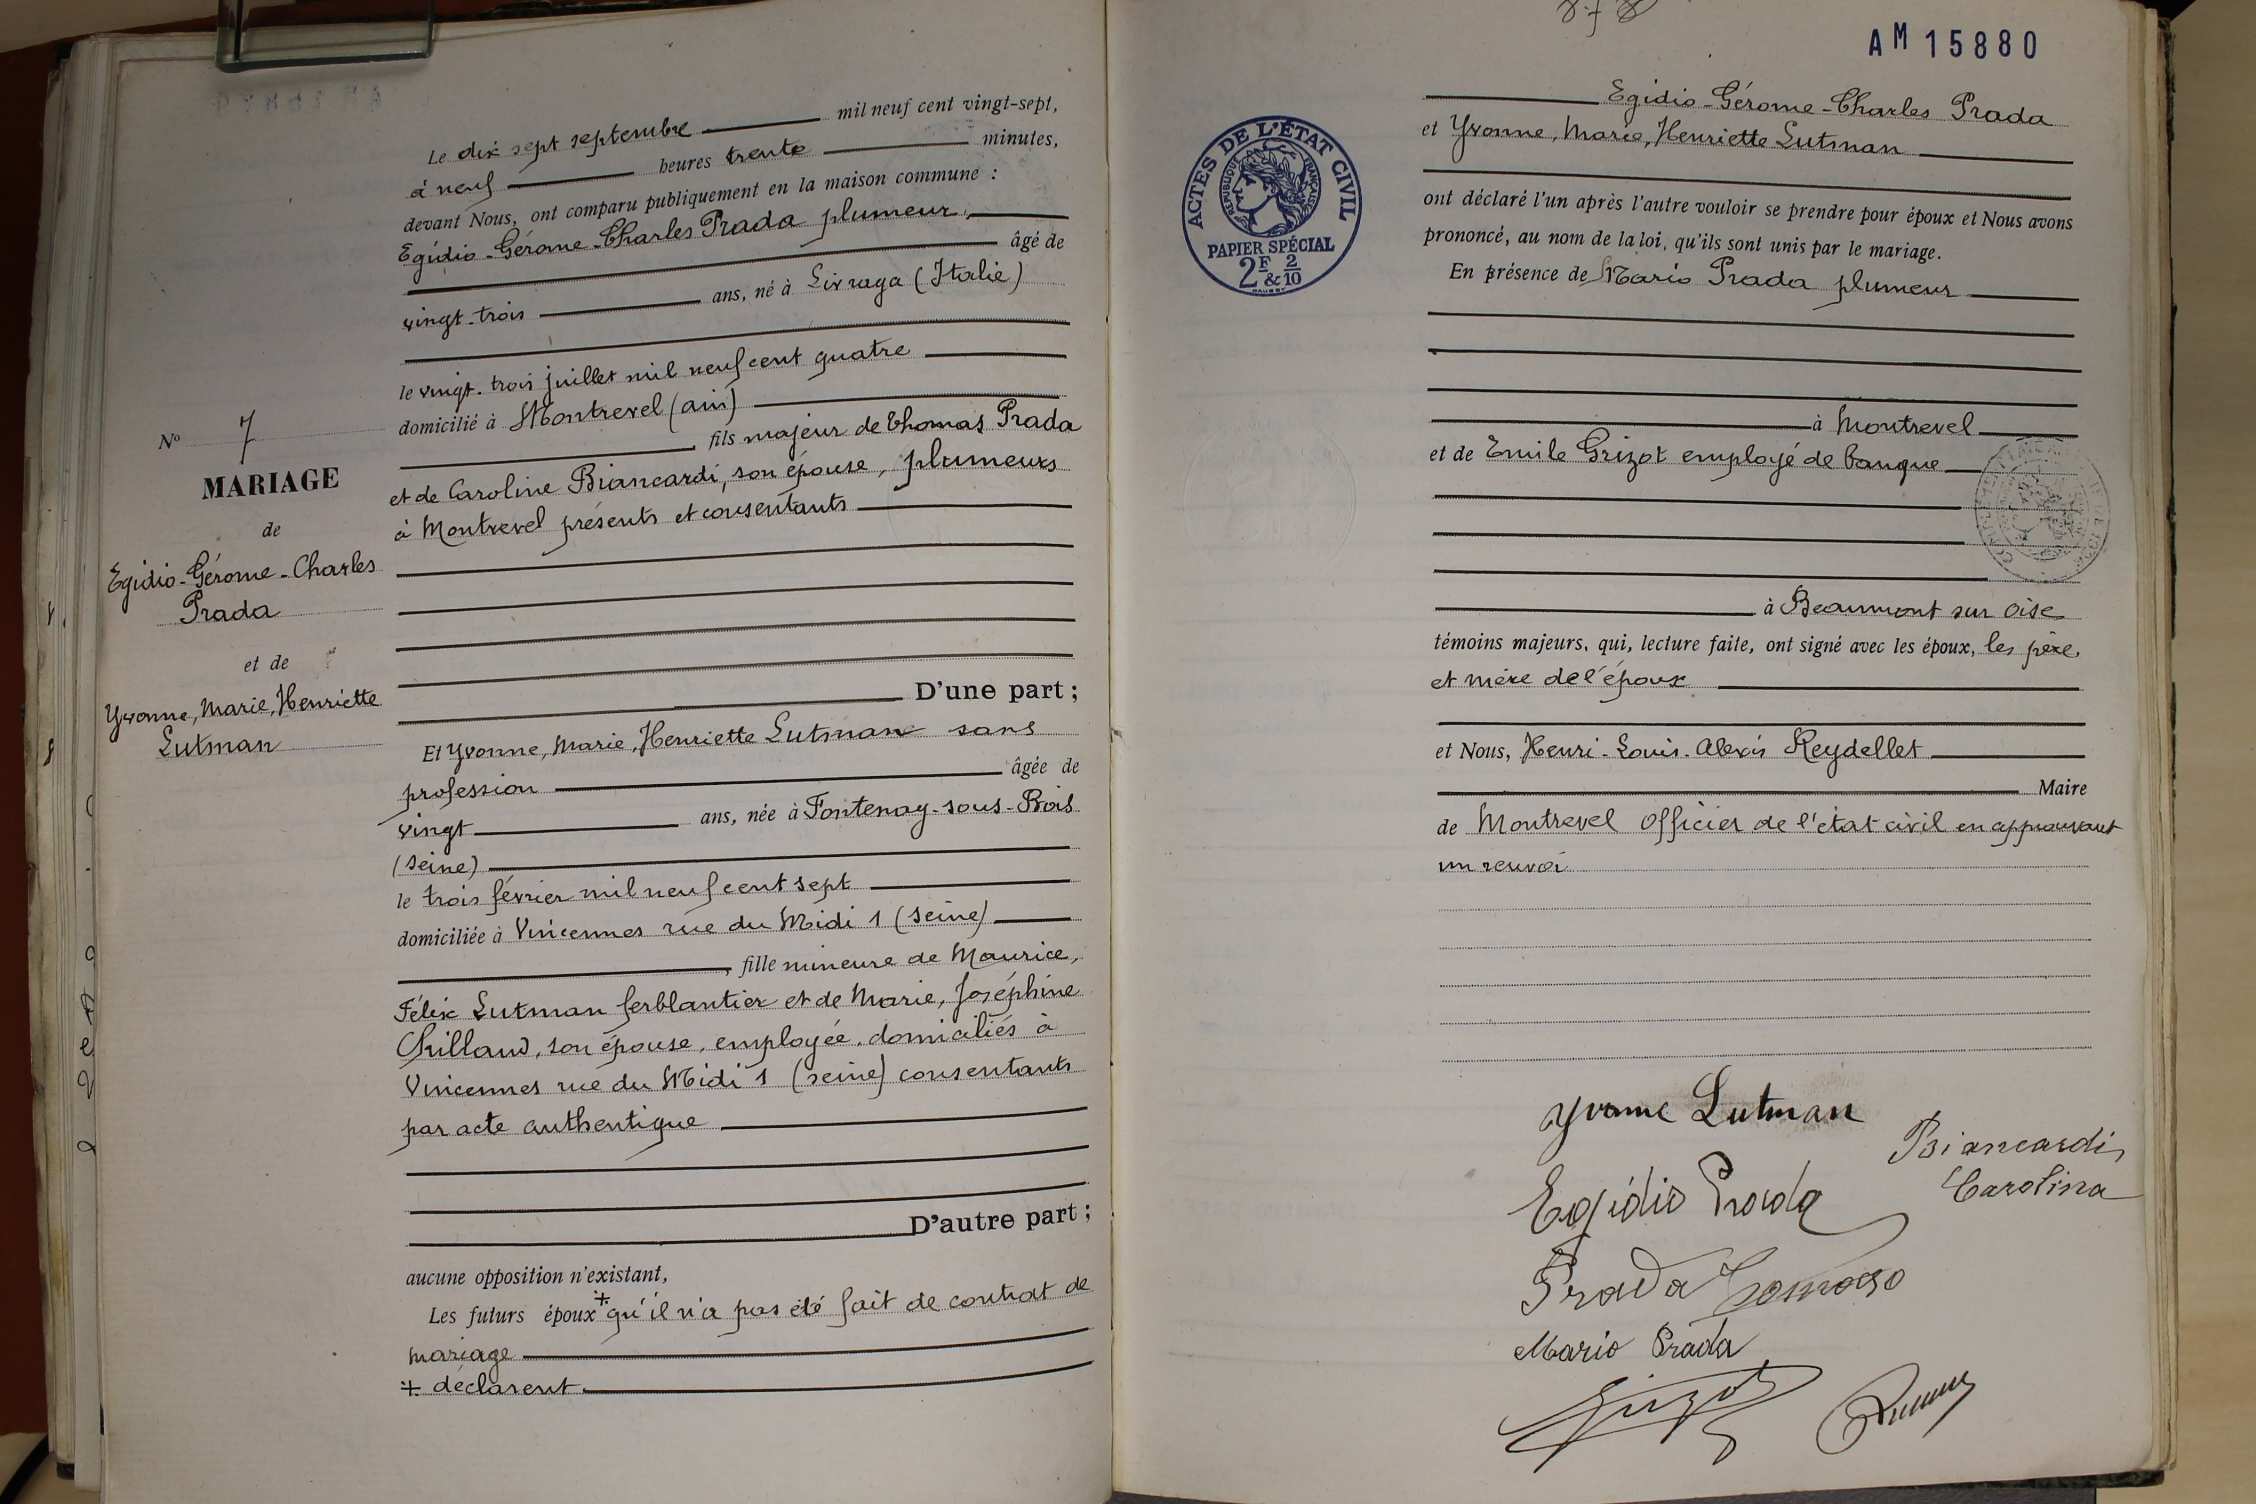 Nº 7
MARIAGE
de
Egidio-Gérome-Charles
Prada
et de
Yvonne, Marie, Henriette
Lutman
Le dix sept septembre mil neuf cent vingt-sept,
à neuf heures trente minutes,
devant Nous, ont comparu publiquement en la maison commune :
Egidio-Gérome-Charles Prada plumeur,
âgé de
vingt-trois ans, né à Livraga (Italie)
le vingt-trois juillet mil neuf cent quatre
domicilié à Montrevel (ain)
fils majeur de Thomas Prada
et de Caroline Biancardi, son épouse, plumeurs
à Montrevel présents et consentants
D'une part ;
Et Yvonne, Marie, Henriette Lutman sans
profession âgée de
vingt ans, née à Fontenay-sous-Bois
(Seine)
le trois février mil neuf cent sept
domiciliée à Vincennes rue du Midi 1 (Seine)
, fille mineure de Maurice,
Félix Lutman ferblantier et de Marie, Joséphine
Chillaud, son épouse, employée, domiciliés à
Vincennes rue du Midi 1 (seine) consentants
par acte authentique
D'autre part ;
aucune opposition n'existant,
Les futurs époux + qu'il n'a pas été fait de contrat de
mariage
+ déclarent
AM 15880
ACTES DE L'ÉTAT CIVIL
RÉPUBLIQUE FRANÇAISE
PAPIER SPÉCIAL
2F & 2/10
Egidio-Gérome-Charles Prada
et Yvonne, Marie, Henriette Lutman
ont déclaré l'un après l'autre vouloir se prendre pour époux et Nous avons
prononcé, au nom de la loi, qu'ils sont unis par le mariage.
En présence de Mario Prada plumeur
à Montrevel
et de Emile Grizot employé de banque
à Beaumont sur Oise
témoins majeurs, qui, lecture faite, ont signé avec les époux, les père
et mère de l'époux
et Nous, Henri-Louis-Alexis Reydellet
Maire
de Montrevel Officier de l'état civil en approuvant
un renvoi
Yvonne Lutman
Biancardi
Carolina
Egidio Prada
Prada Tomaso
Mario Prada
Grizot